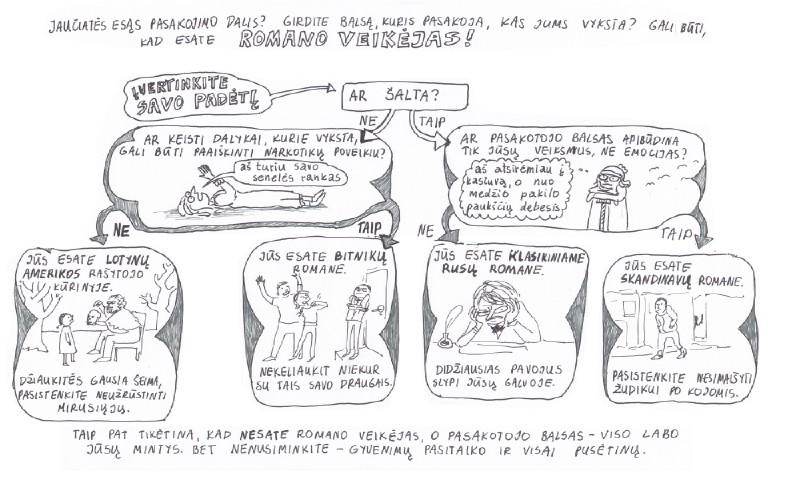 JAUČIATĖS ESĄS PASAKOJIMO DALIS? GIRDITE BALSĄ, KURIS PASAKOJA, KAS JUMS VYKSTA? GALI BŪTI,
KAD ESATE ROMANO VEIKĖJAS!
ĮVERTINKITE
SAVO PADĖTĮ
AR ŠALTA?
NE
TAIP
AR KEISTI DALYKAI, KURIE VYKSTA,
GALI BŪTI PAAIŠKINTI NARKOTIKŲ POVEIKIU?
aš turiu savo
senelės rankas
AR PASAKOTOJO BALSAS APIBŪDINA
TIK JŪSŲ VEIKSMUS, NE EMOCIJAS?
aš atsirėmiau į
kasiuvą, o nuo
medžio pakilo
paukščių debesis
NE
TAIP
NE
TAIP
JŪS ESATE LOTYNŲ
AMERIKOS RAŠYTOJO
KŪRINYJE.
DŽIAUKITĖS GAUSIA ŠEIMA,
PASISTENKITE NEUŽRŪSTINTI
MIRUSIŲJŲ.
JŪS ESATE BITNIKŲ
ROMANE.
NEKELIAUKIT NIEKUR
SU TAIS SAVO DRAUGAIS.
JŪS ESATE KLASIKINIAME
RUSŲ ROMANE.
DIDŽIAUSIAS PAVOJUS
SLYPI JŪSŲ GALVOJE.
JŪS ESATE
SKANDINAVŲ ROMANE.
PASISTENKITE NESIMAIŠYTI
ŽUDIKUI PO KOJOMIS.
TAIP PAT TIKĖTINA, KAD NESATE ROMANO VEIKĖJAS, O PASAKOTOJO BALSAS – VISO LABO
JŪSŲ MINTYS. BET NENUSIMINKITE – GYVENIMŲ PASITAIKO IR VISAI PUSĖTINŲ.